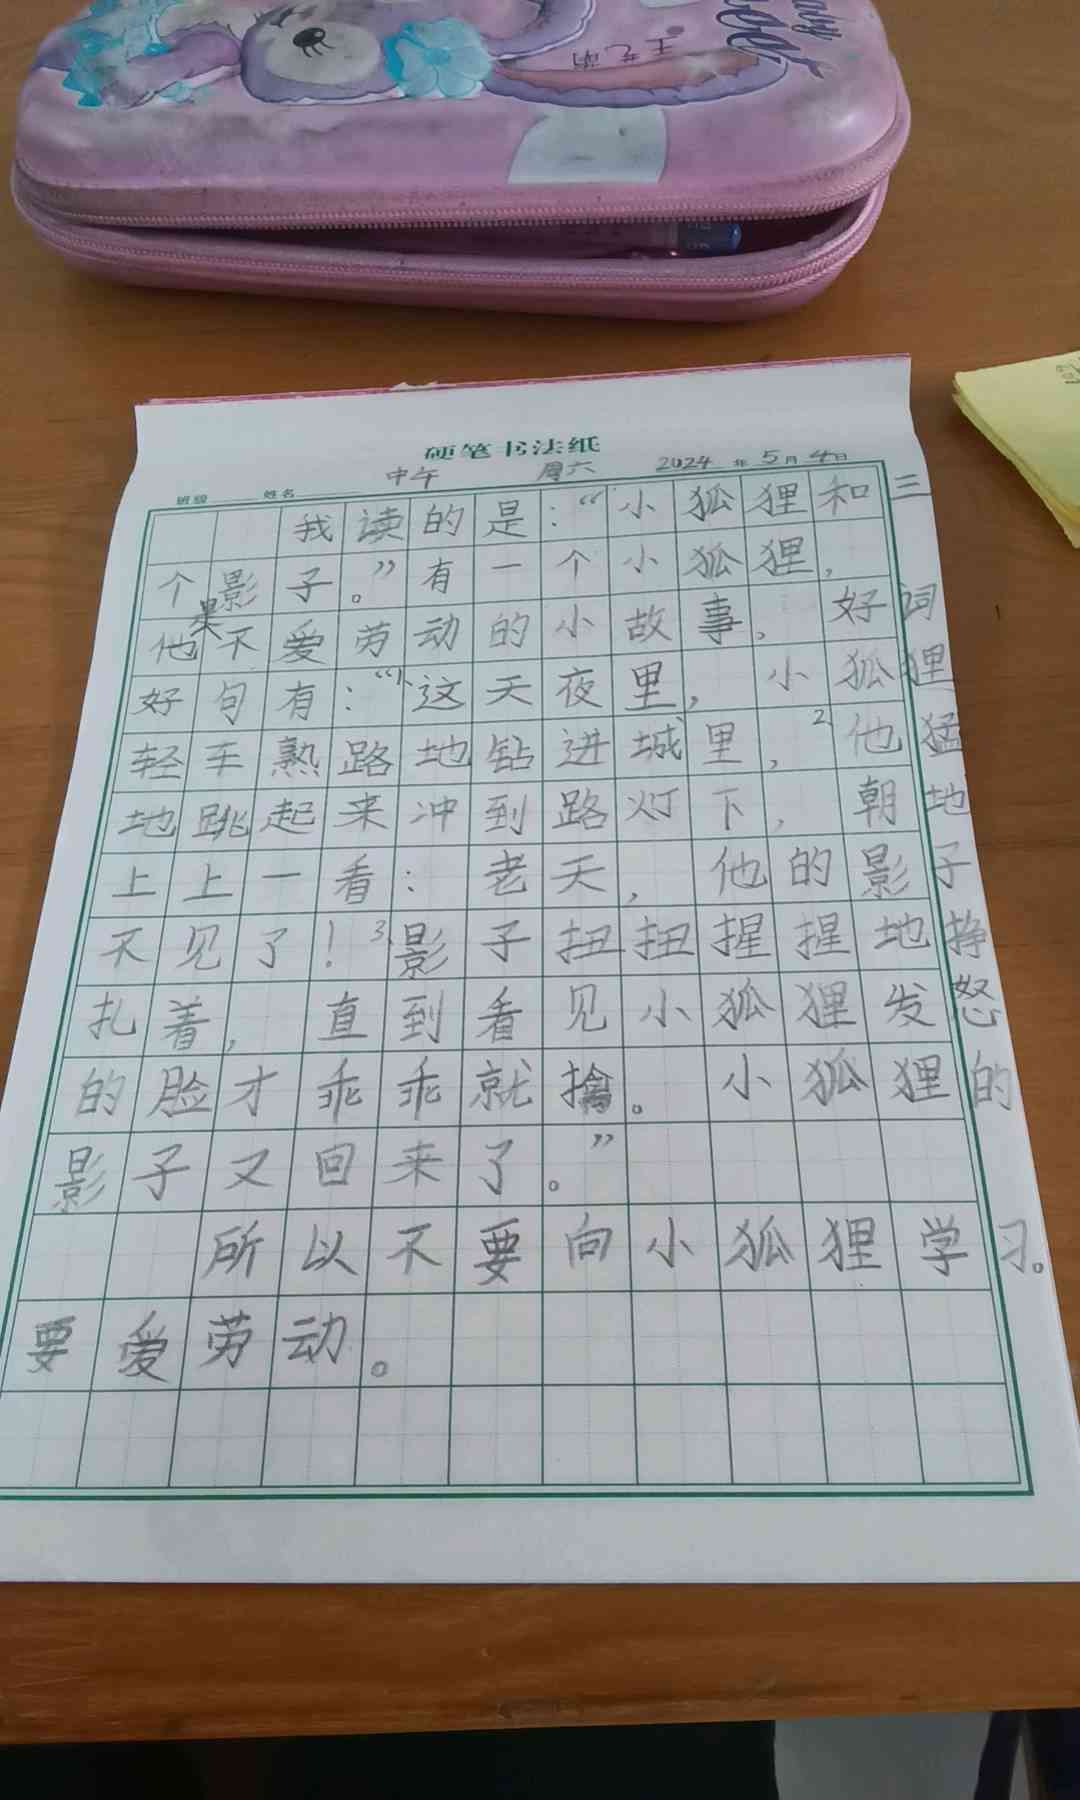 王艺萌
硬笔书法纸
中午 周六 2024 年 5 月 4 日
班级 姓名
我读的是：“小狐狸和三
个影子。”有一个小狐狸，
他是不爱劳动的小故事。好词
好句有：“1、这天夜里，小狐狸
轻车熟路地钻进城里，2、他猛
地跳起来冲到路灯下，朝地
上上一看：老天，他的影子
不见了！3、影子扭扭捏捏地挣
扎着，直到看见小狐狸发怒
的脸才乖乖就擒。小狐狸的
影子又回来了。”
所以不要向小狐狸学习。
要爱劳动。